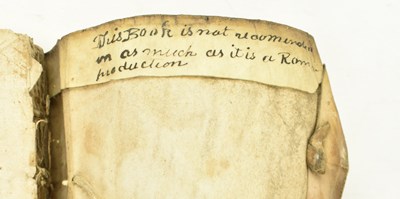 This Book is not recomend
in as much as it is a Rom
production